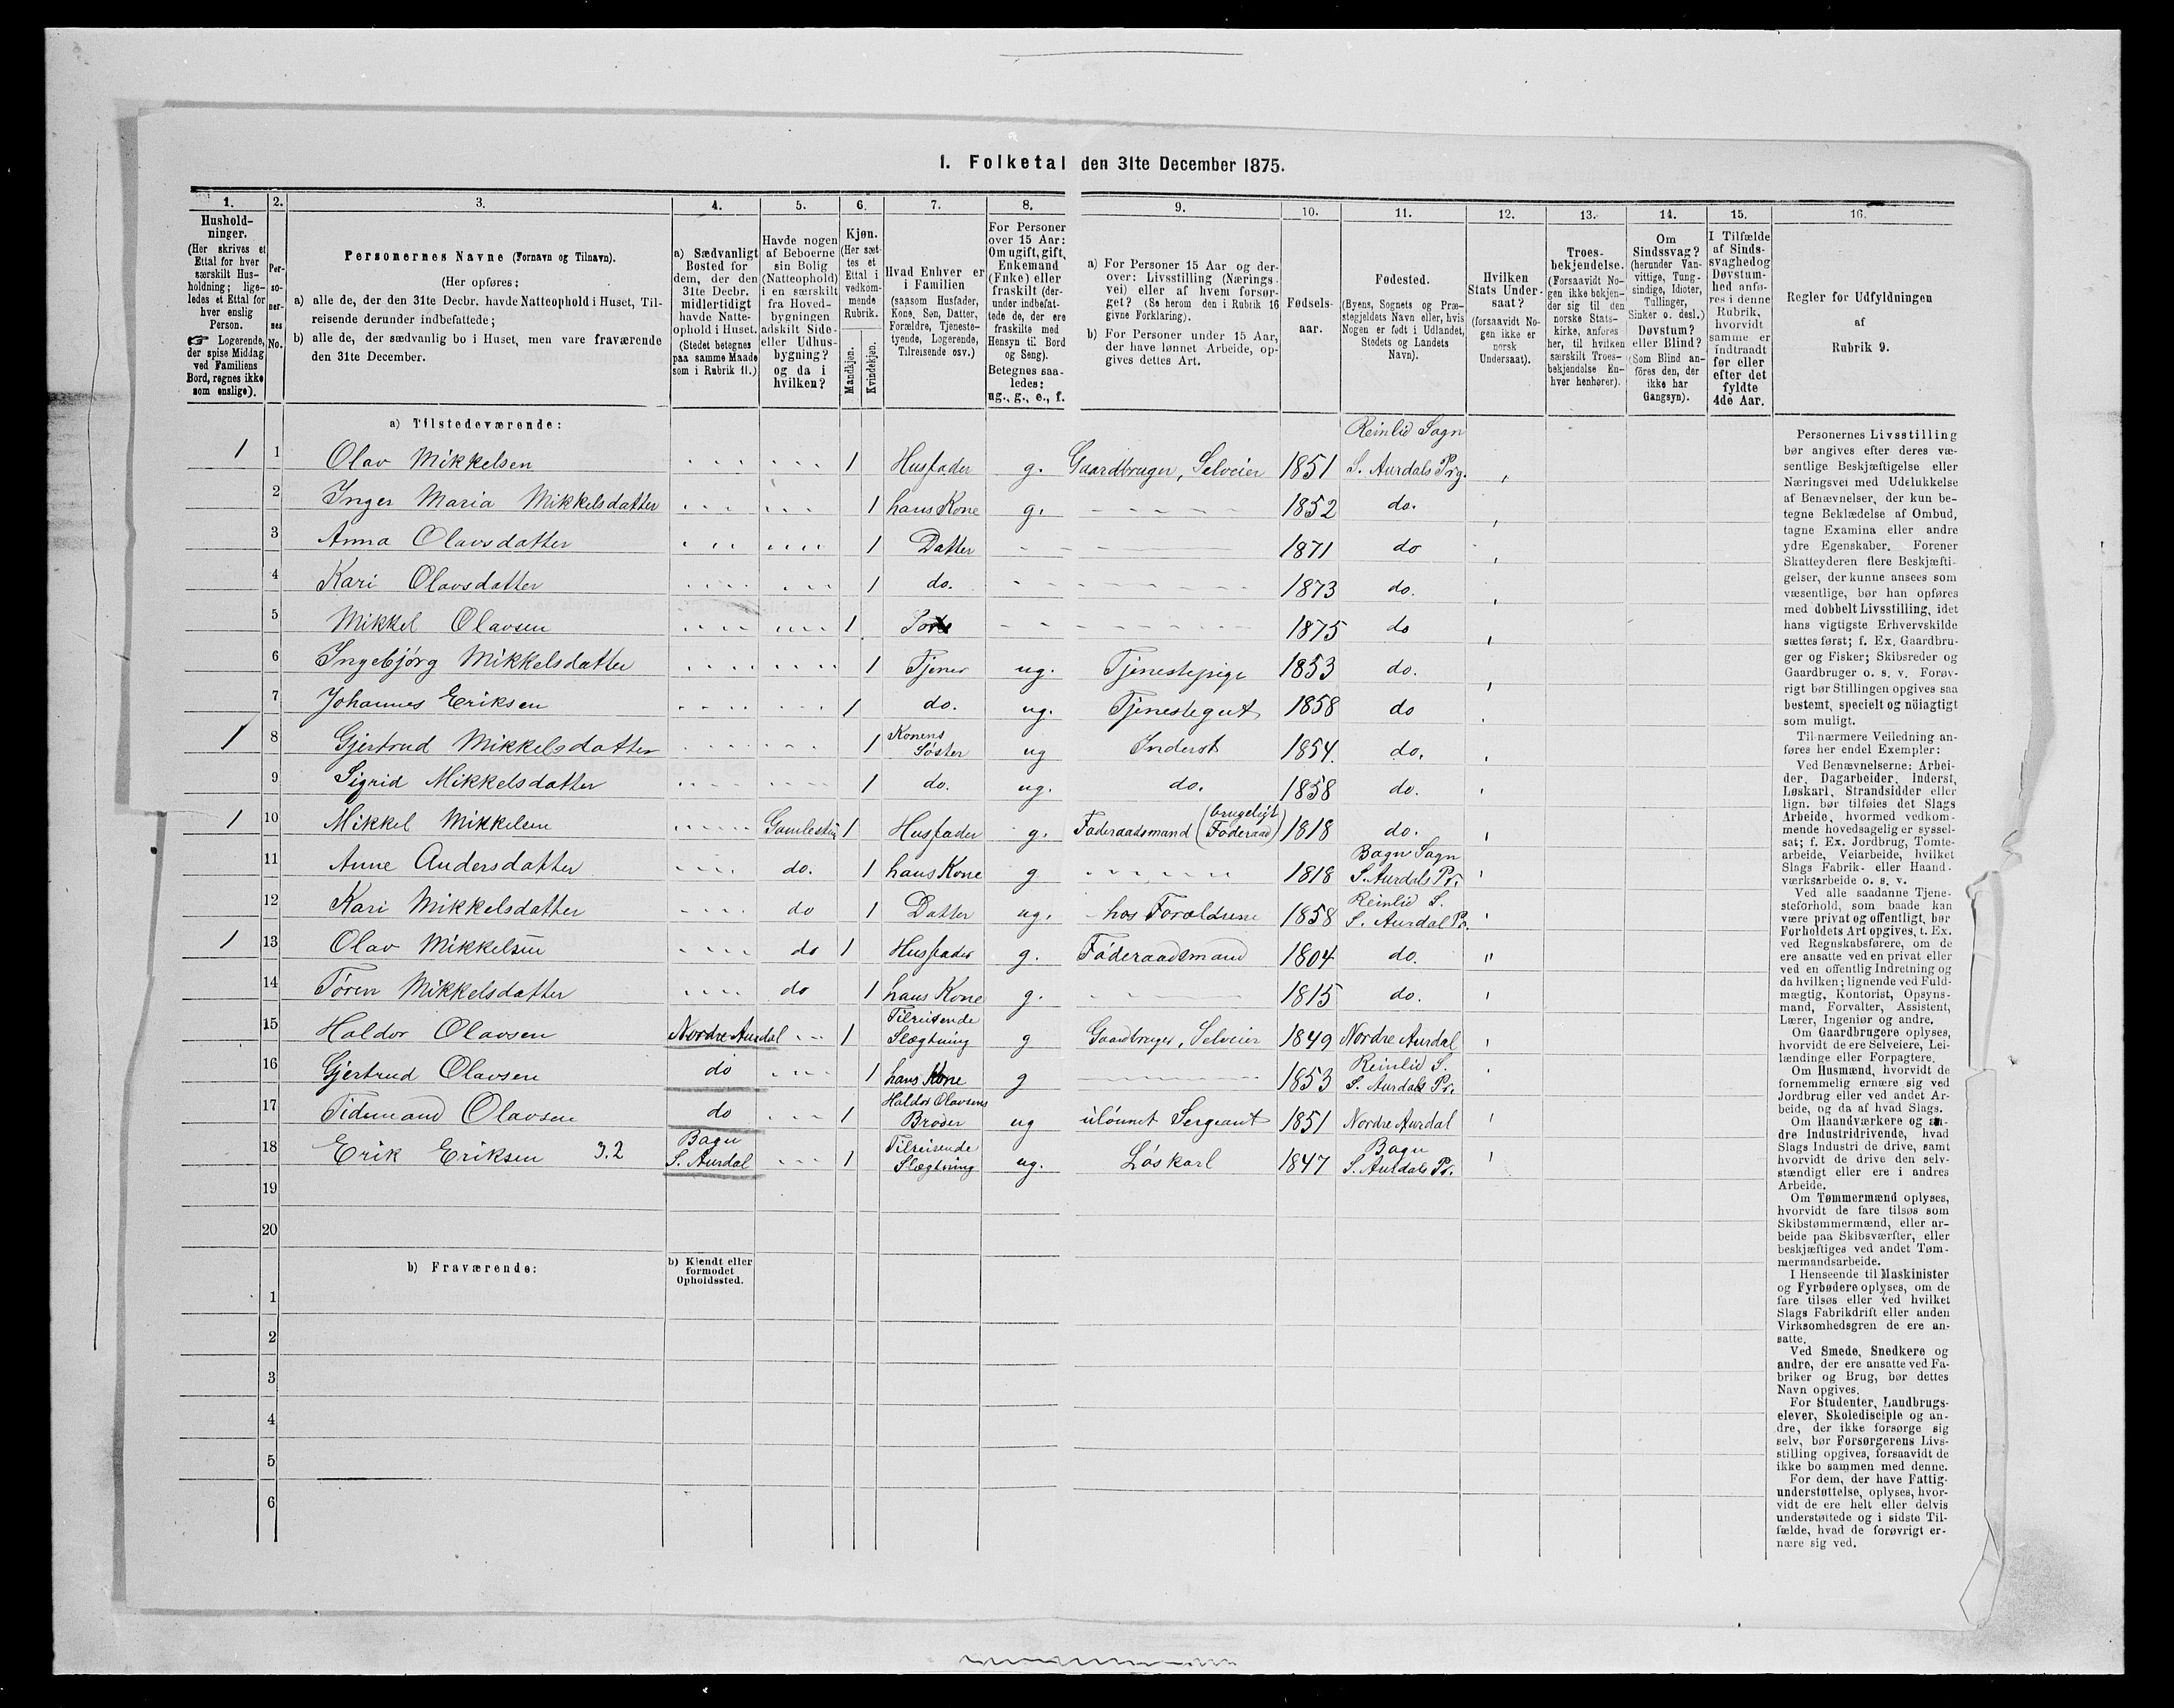 1. Folketal den 31te December 1875.
1.
Hushold-
ninger.
(Her skrives et
Ettal for hver
særskilt Hus-
holdning; lige-
ledes et Ettal for
hver enslig
Person.
☞ Logerende,
der spise Middag
ved Familiens
Bord, regnes ikke
som enslige).
2.
Per-
so-
ner-
nes
No.
3.
Personernes Navne (Fornavn og Tilnavn).
(Her opføres:
a) alle de, der den 31te Decbr. havde Natteophold i Huset, Til-
reisende derunder indbefattede;
b) alle de, der sædvanlig bo i Huset, men vare fraværende
den 31te December.
4.
a) Sædvanligt
Bosted for
dem, der den
31te Decbr.
midlertidigt
havde Natte-
ophold i Huset.
(Stedet betegnes
paa samme Maade
som i Rubrik 11.)
5.
Havde nogen
af Beboerne
sin Bolig
(Natteophold)
i en særskilt
fra Hoved-
bygningen
adskilt Side-
eller Udhus-
bygning?
og da i
hvilken?
6.
Kjøn.
(Her sæt-
tes et
Ettal i
vedkom-
mende
Rubrik.
Mandkjøn.
Kvindekjøn.
7.
Hvad Enhver er
i Familien
(saasom Husfader,
Kone, Søn, Datter,
Forældre, Tjeneste-
tyende, Logerende,
Tilreisende osv.)
8.
For Personer
over 15 Aar:
Om ugift, gift,
Enkemand
(Enke) eller
fraskilt (der-
under indbefat-
tede de, der ere
fraskilte med
Hensyn til Bord
og Seng).
Betegnes saa-
ledes:
ug., g., e., f.
9.
a) For Personer 15 Aar og der-
over: Livsstilling (Nærings-
vei) eller af hvem forsør-
get? (Se herom den i Rubrik 16
givne Forklaring).
b) For Personer under 15 Aar,
der have lønnet Arbeide, op-
gives dettes Art.
10.
Fødsels-
aar.
11.
Fødested.
(Byens, Sognets og Præ-
stegjeldets Navn eller, hvis
Nogen er født i Udlandet,
Stedets og Landets
Navn).
12.
Hvilken
Stats Under-
saat?
(forsaavidt No-
gen ikke er
norsk
Undersaat).
13.
Troes-
bekjendelse.
(Forsaavidt No-
gen ikke bekjen-
der sig til den
norske Stats-
kirke, anføres
her, til hvilken
særskilt Troes-
bekjendelse En-
hver henhører).
14.
Om
Sindssvag?
(herunder Van-
vittige, Tung-
sindige, Idioter,
Tullinger,
Sinker o. desl.)
Døvstum?
eller Blind?
(Som Blind an-
föres den, der
ikke har
Gangsyn).
15.
I Tilfælde
af Sinds-
svaghed og
Døvstum-
hed anfø-
res i denne
Rubrik,
hvorvidt
samme er
indtraadt
før eller
efter det
fyldte
4de Aar.
16.
Regler for Udfyldningen
af
Rubrik 9.
a) Tilstedeværende:
Reinlid Sogn
1 1 Olav Mikkelsen 1 Husfader g. Gaardbruger, Selveier 1851 S. Aurdals Prg.
2 Inger Maria Mikkelsdatter 1 hans Kone g. 1852 do.
3 Anna Olavsdatter 1 Datter 1871 do
4 Kari Olavsdatter 1 do. 1873 do.
5 Mikkel Olavsen 1 1875 do
6 Ingebjörg Mikkelsdatter 1 Tjener ug. Tjenestepige 1853 do.
7 Johannes Eriksen 1 do. ug. Tjenestegut 1858 do
1 8 Gjertrud Mikkelsdatter 1 Konens Söster ug Inderst 1854. do.
9 Sigrid Mikkelsdatter 1 do. ug. do. 1858 do.
1 10 Mikkel Mikkelsen 1 Husfader g. Föderaadsmand (brugeligt Föderaad) 1818 do.
11 Anne Andersdatter do. 1 hans Kone g 1818 Bagn Sogn S. Aurdals Pr.
12 Kari Mikkelsdatter do 1 Datter ug. hos Forældrene 1858 Reinlid S. S. Aurdal Pr.
1 13 Olav Mikkelsen do 1 Husfader g. Föderaadsmand 1804 do.
14 Tören Mikkelsdatter do 1 hans Kone g. 1815 do.
15 Haldor Olavsen Nordre Aurdal 1 Tilreisende Slægtning g Gaardbruger, Selveier 1849 Nordre Aurdal
16 Gjertrud Olavsen do 1 hans Kone g 1853 Reinlid S. S. Aurdals Pr.
17 Tidemand Olavsen do 1 Haldor Olavsens Broder ug ulönnet Sergeant 1851 Nordre Aurdal
18 Erik Eriksen 3.2 Bagn S. Aurdal 1 Tilreisende Slægtning ug. Löskarl 1847 Bagn S. Aurdals Pr.
19
20
b) Fraværende:
b) Kjendt eller
formodet
Opholdssted.
1
2
3
4
5
6
Personernes Livsstilling
bør angives efter deres væ-
sentlige Beskjæftigelse eller
Næringsvei med Udelukkelse
af Benævnelser, der kun be-
tegne Beklædelse af Ombud,
tagne Examina eller andre
ydre Egenskaber. Forener
Skatteyderen flere Beskjæfti-
gelser, der kunne ansees som
væsentlige, bør han opføres
med dobbelt Livsstilling, idet
hans vigtigste Erhvervskilde
sættes først; f. Ex. Gaardbru-
ger og Fisker; Skibsreder og
Gaardbruger o. s. v. Forøv-
rigt bør Stillingen opgives saa
bestemt, specielt og nöiagtigt
som muligt.
Til nærmere Veiledning an-
føres her endel Exempler:
Ved Benævnelserne: Arbei-
der, Dagarbeider, Inderst,
Løskarl, Strandsidder eller
lign. bør tilføies det Slags
Arbeide, hvormed vedkom-
mende hovedsagelig er syssel-
sat; f. Ex. Jordbrug, Tomte-
arbeide, Veiarbeide, hvilket
Slags Fabrik- eller Haand-
værksarbeide o. s. v.
Ved alle saadanne Tjene-
steforhold, som baade kan
være privat og offentligt, bør
Forholdets Art opgives, t. Ex.
ved Regnskabsførere, om de
ere ansatte ved en privat eller
ved en offentlig Indretning og
da hvilken; lignende ved Fuld-
mægtig, Kontorist, Opsyns-
mand, Forvalter, Assistent,
Lærer, Ingeniør og andre.
Om Gaardbrugere oplyses,
hvorvidt de ere Selveiere, Lei-
lændinge eller Forpagtere.
Om Husmænd, hvorvidt de
fornemmelig ernære sig ved
Jordbrug eller ved andet Ar-
beide, og da af hvad Slags.
Om Haandværkere og an-
dre Industridrivende, hvad
Slags Industri de drive, samt
hvorvidt de drive den selv-
stændigt eller ere i andres
Arbeide.
Om Tømmermænd oplyses,
hvorvidt de fare tilsøs som
Skibstømmermænd, eller ar-
beide paa Skibsværfter, eller
beskjæftiges ved andet Tøm-
mermandsarbeide.
I Henseende til Maskinister
og Fyrbødere oplyses, om de
fare tilsøs eller ved hvilket
Slags Fabrikdrift eller anden
Virksomhedsgren de ere an-
satte.
Ved Smede, Snedkere og
andre, der ere ansatte ved Fa-
briker og Brug, bør dettes
Navn opgives.
For Studenter, Landbrugs-
elever, Skoledisciple og an-
dre, der ikke forsørge sig
selv, bør Forsørgerens Livs-
stilling opgives, forsaavidt de
ikke bo sammen med denne.
For dem, der have Fattig-
understøttelse, oplyses, hvor-
vidt de ere helt eller delvis
understøttede og i sidste Til-
fælde, hvad de forøvrigt er-
nære sig ved.